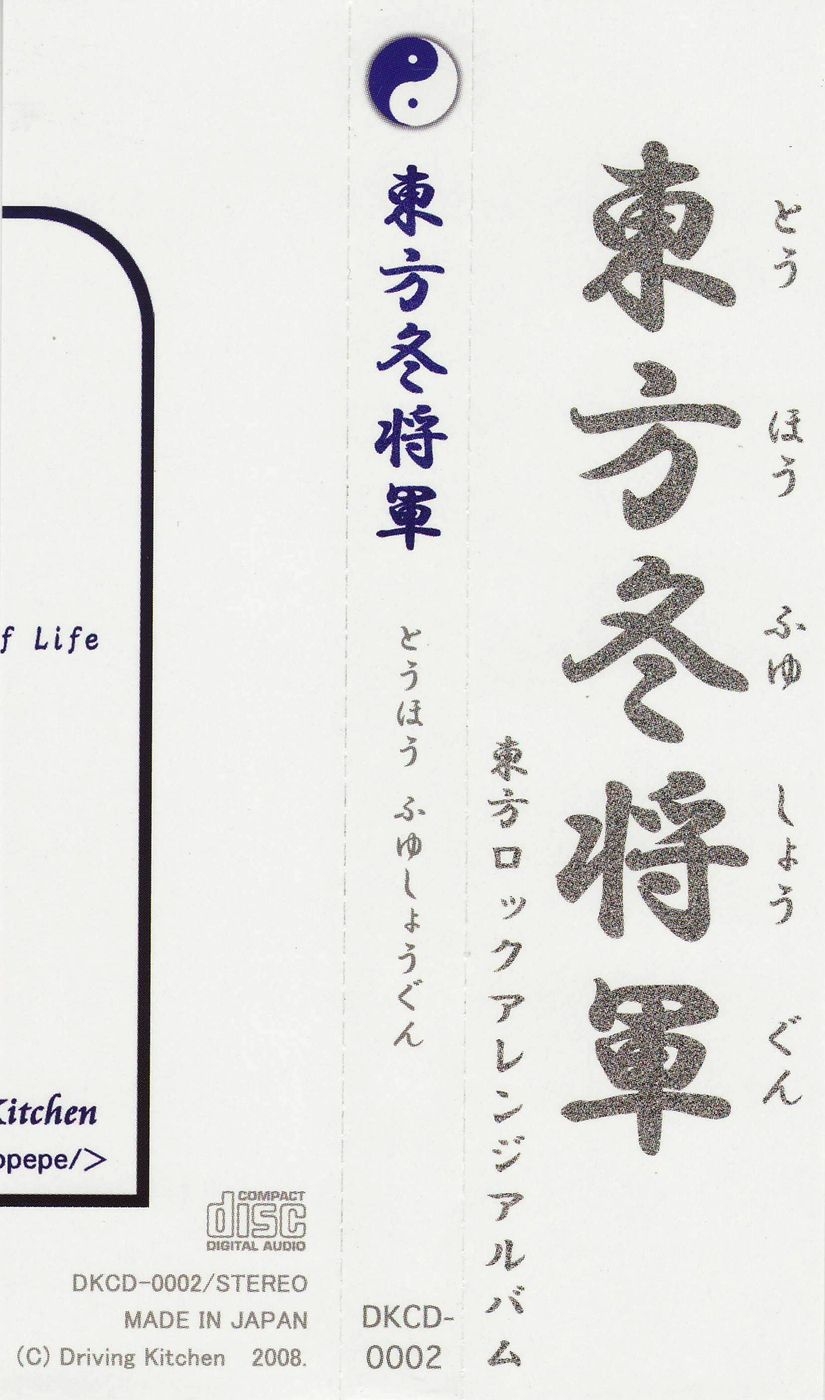 東方冬将軍
とう ほう ふゆ しょう ぐん
東方ロックアレンジアルバム
東方冬将軍
とうほう ふゆしょうぐん
DKCD-
0002
f Life
Kitchen
opepe/>
COMPACT
disc
DIGITAL AUDIO
DKCD-0002/STEREO
MADE IN JAPAN
(C) Driving Kitchen 2008.